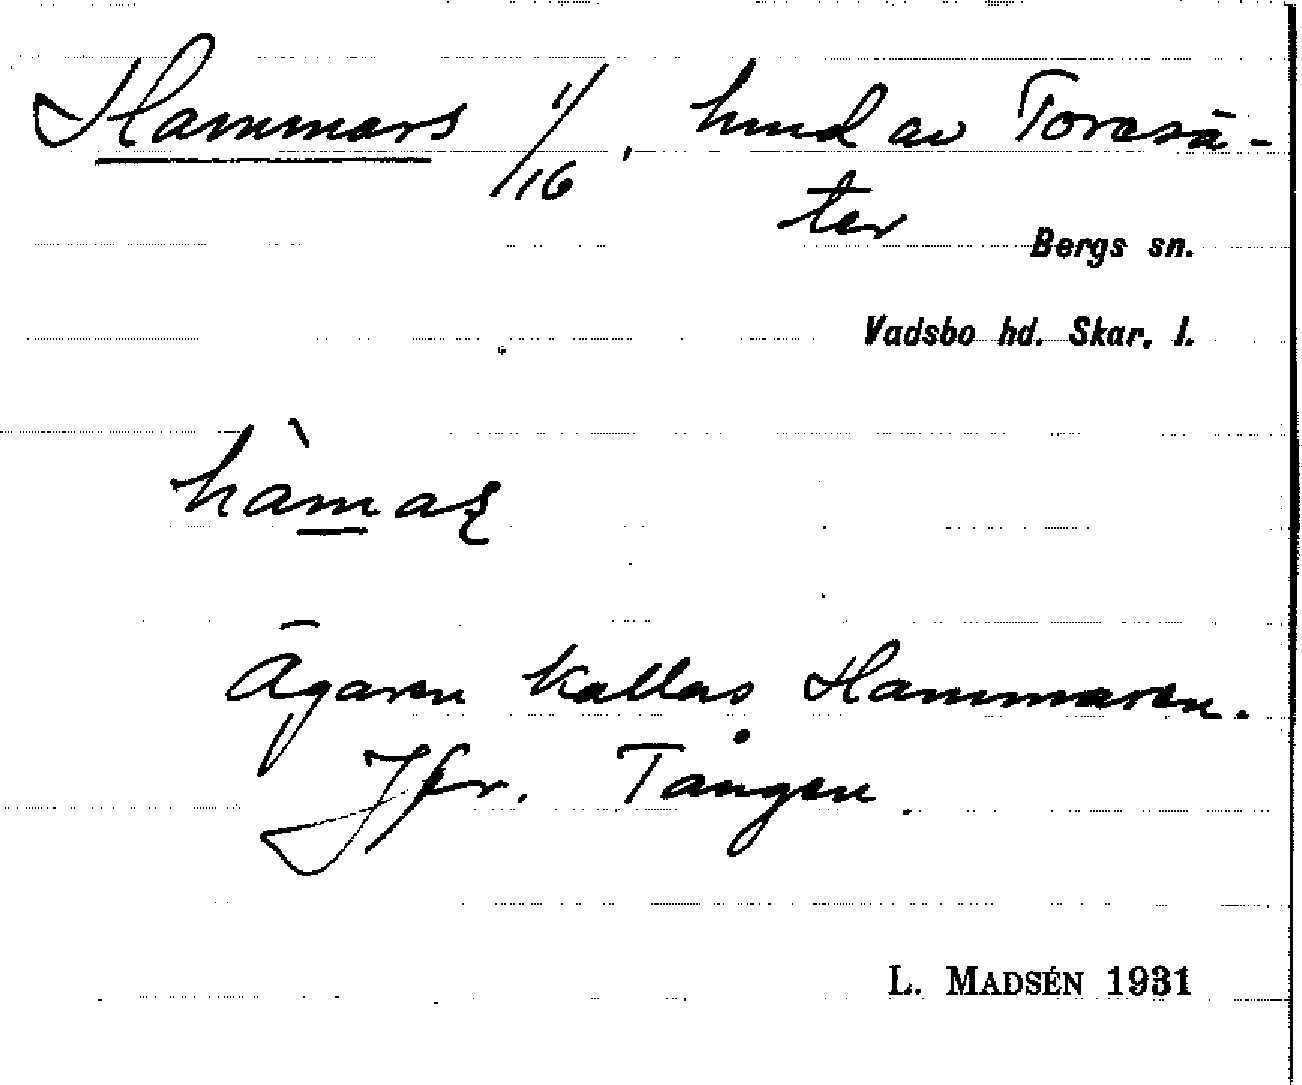 Hammars 1/16, hmd av Torasä-
ter
Bergs sn.
Vadsbo hd. Skar. l.
hàmaʂ
Ägaren kallas Hammaren.
Jfr. Tången.
L. MADSÉN 1931